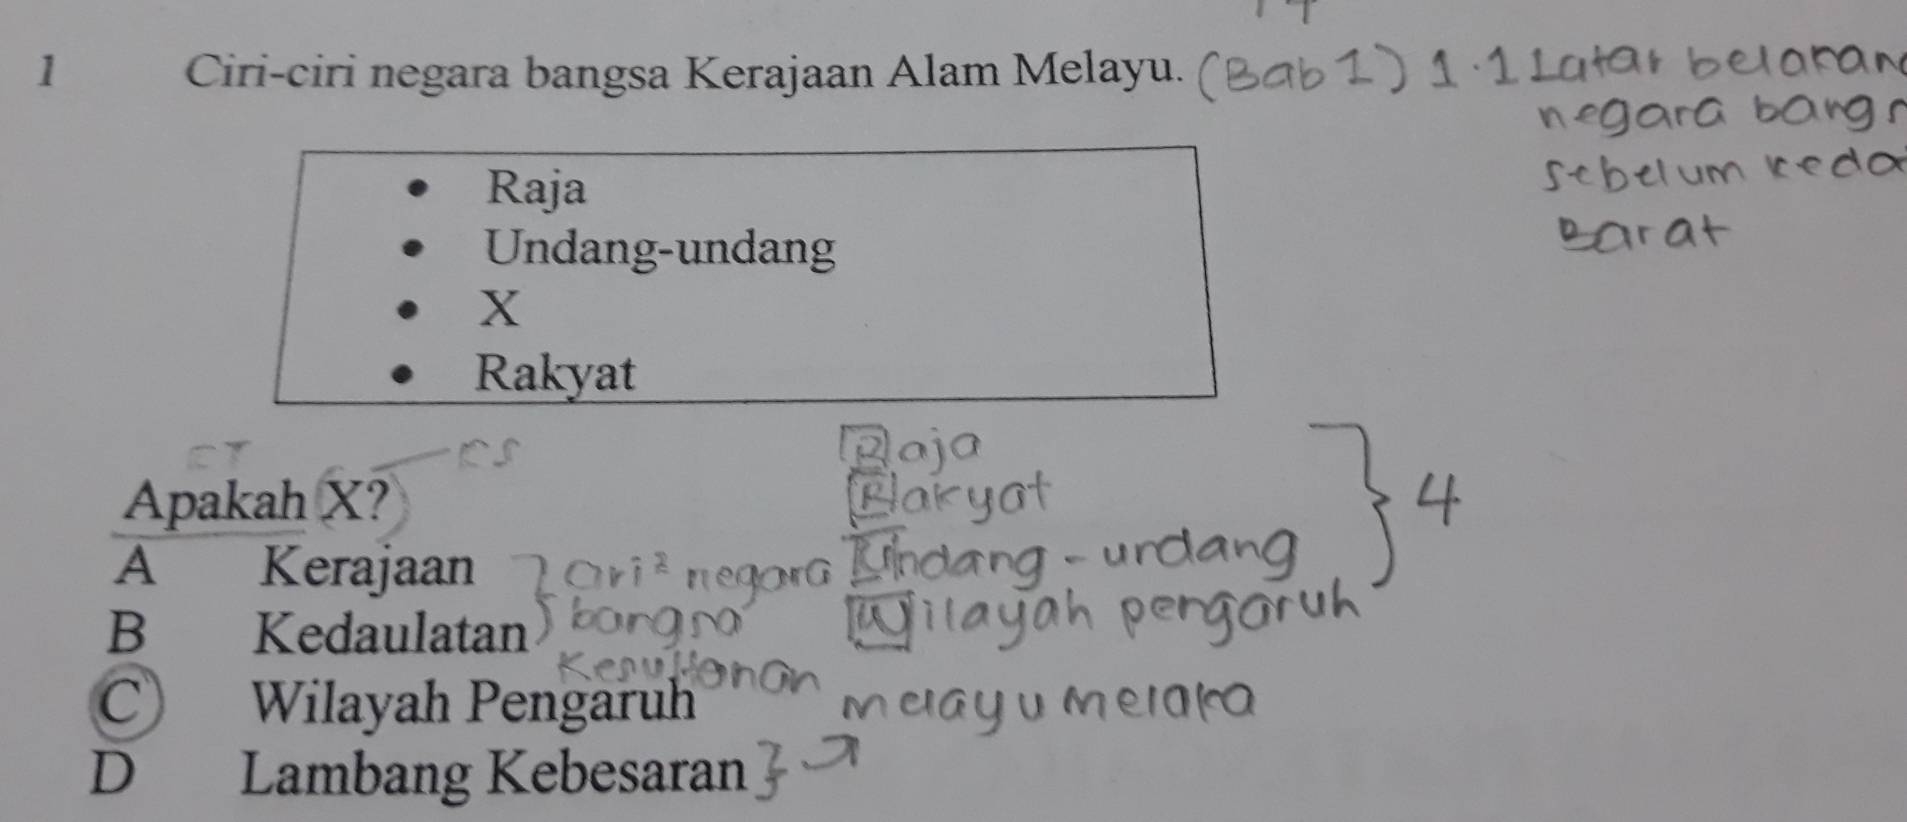 1 Ciri-ciri negara bangsa Kerajaan Alam Melayu. (Bab 1) 1.1 Latar belakang
negara bangs
sebelum keda
Barat
• Raja
• Undang-undang
• X
• Rakyat
CT KS
Apakah X?
Raja
Rakyat
Undang-undang } 4
Wilayah pengaruh
A Kerajaan } ciri² negara
B Kedaulatan } bangsa
Kesultanan melayu melaka
C Wilayah Pengaruh
D Lambang Kebesaran }